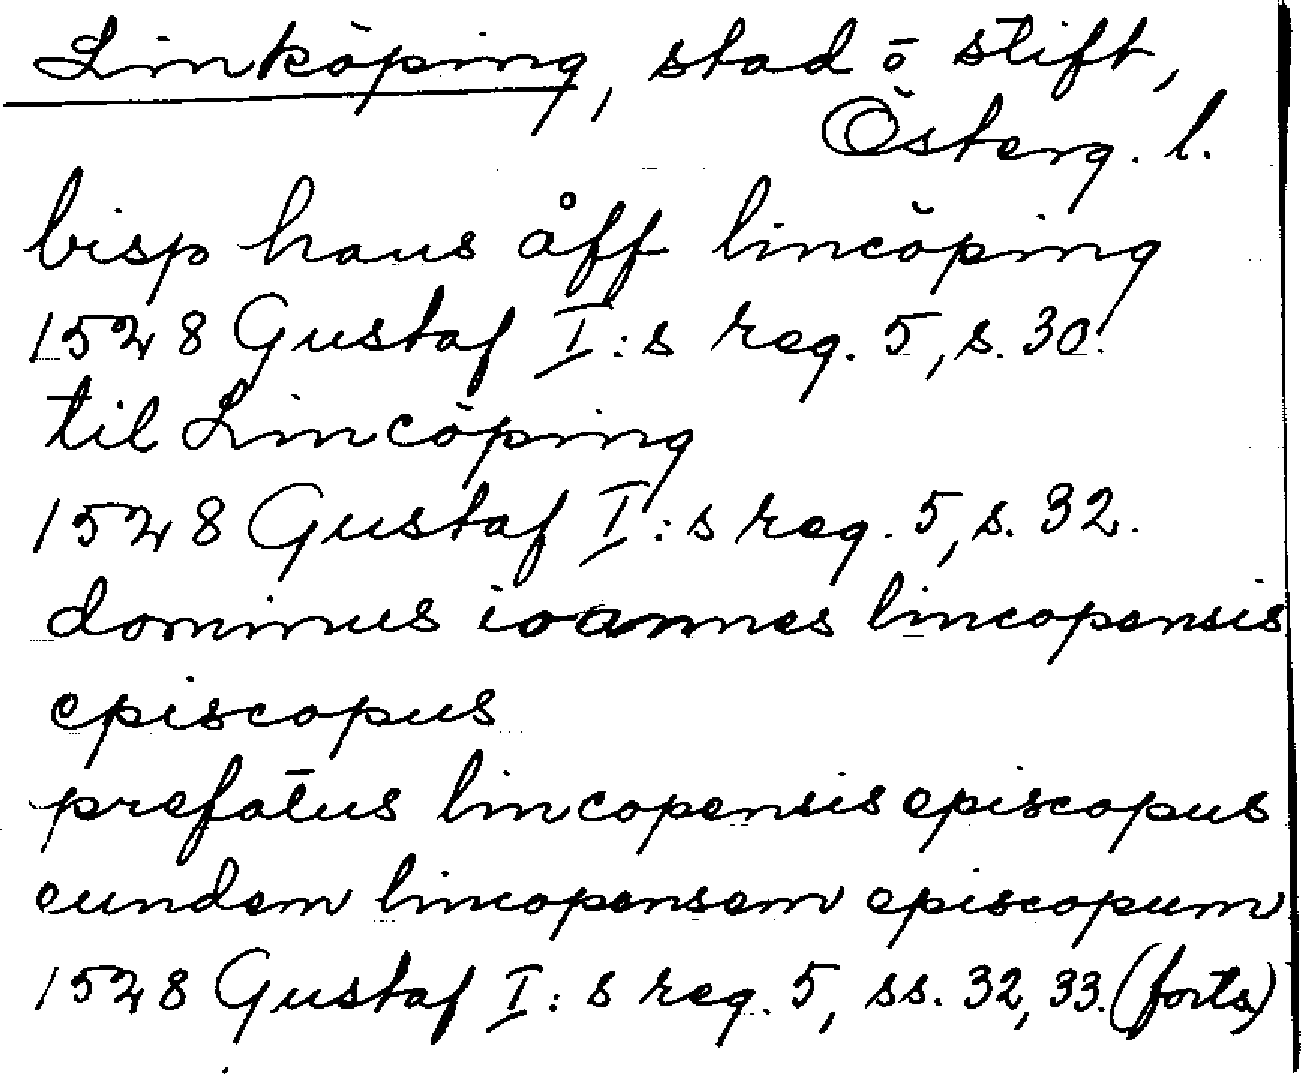 Linköping, stad ō stift,
Österg. l.
bisp hans åff lincöping
1528 Gustaf I:s reg. 5, s. 30.
til Lincöping
1528 Gustaf I:s reg. 5, s. 32.
dominus ioannes lincopensis
episcopus
prefatus lincopensis episcopus
eundem lincopensem episcopum
1528 Gustaf I:s reg. 5, ss. 32, 33. (forts)